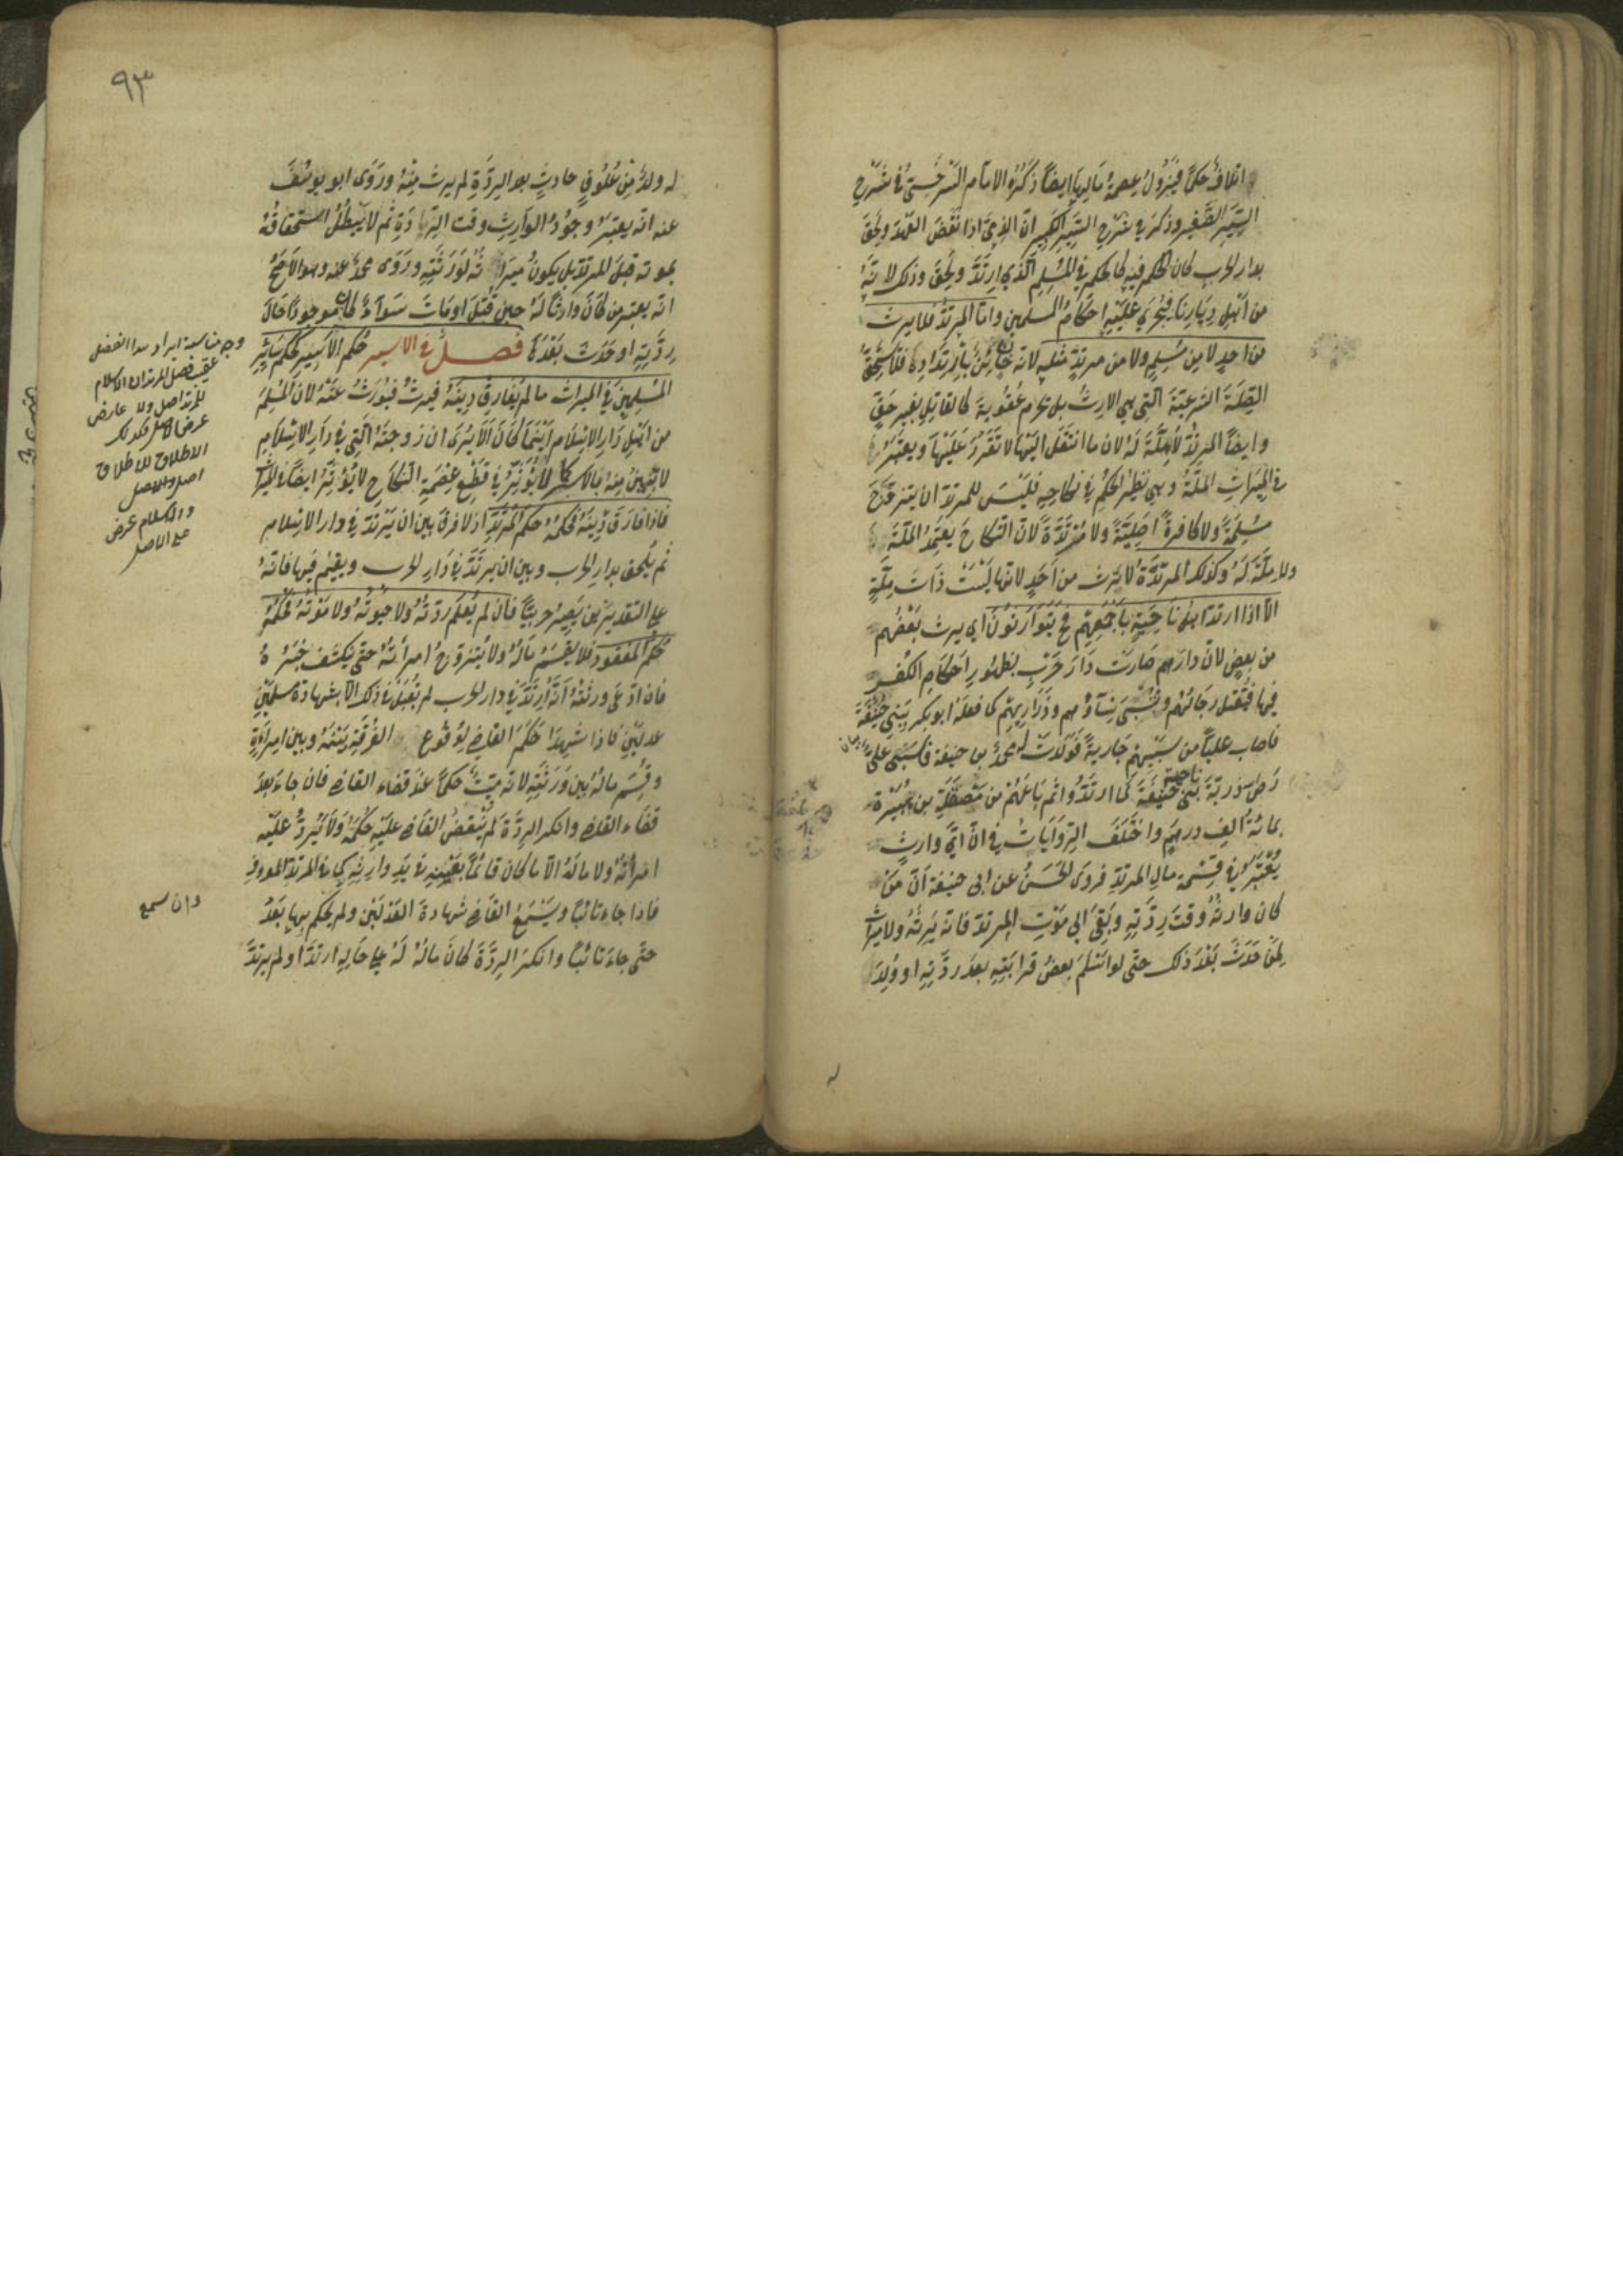 اتلافٌ حكمًا فيزول عصمة مالها ايضًا ذكره الامام السرخسي في شرح
السير الصغير وذكر في شرح السير الكبير انّ الذمي اذا نقض العهد ولحق
بدار الحرب كان الحكم فيه كالحكم في المسلم الذي ارتدّ ولحق وذلك لانّه
من اهل ديارنا فيجري عليه احكام المسلمين وامّا المرتدّ فلا يرث
من احدٍ لا من مسلم ولا من مرتدّ مثله لانه جانٍ بارتداده فلا يستحقّ
الصلة الشرعيّة التي هي الارث بل يحرم عقوبة كالقاتل بغير حقّ
وايضًا المرتدّ لا ملّة له لان ما انتقل اليها لا تقرّر عليها ويعتبر
في الميراث الملّة وهي نظير الحكم في نكاحه فليس للمرتدّ ان يتزوّج
مسلمة ولا كافرة اصليّة ولا مرتدّة لانّ النكاح يعتمد الملّة
ولا ملّة له وكذلك المرتدّة لا ترث من احدٍ لانها ليست ذات ملّة
الّا اذا ارتدّ اهل ناحية باجمعهم فح يتوارثون اي يرث بعضهم
من بعض لانّ دارهم صارت دار حرب بظهور احكام الكفر
فيها فيقتل رجالهم وتسبى نساؤهم وذراريهم كما فعله ابو بكر ببني حنيفة
فاصاب عليًّا من سبيهم جارية فولدت له محمد بن حنيفة فاسبى عليّ
رض ذريّة بني ناحية لما ارتدّوا ثم باعهم من مصقلة بن هبيرة
بمائة الف درهم واختلف الروايات في انّ ايّ وارث
يعتبر في قسمة مال المرتدّ فروى الحسن عن ابي حنيفة انّ من
كان وارثه وقت ردّته وبقى الى موت المرتدّ فانّه يرثه ولا ميراث
لمن حدث بعد ذلك حتى لو اسلم بعض قرابته بعد ردّته او ولد
له
٩٣
له ولد من علوق حادث بعد الردّة لم يرث منه وروى ابو يوسف
عنه انّه يعتبر وجود الوارث وقت الردّة ثم لا يبطل استحقاقه
بموته قبل المرتدّ بل يكون ميراثه لورثته وروى محمد عنه وهو الاصحّ
انّه يعتبر من كان وارثًا له حين قتل او مات سواء كان موجودًا حال
ردّته او حدث بعدها فصل في الاسير حكم الاسير كحكم سائر
المسلمين في الميراث ما لم يفارق دينه فيرث فيورث عنه لانّ المسلم
من اهل دار الاسلام اينما كان الا يرى ان زوجته التي في دار الاسلام
لا تبين منه فالاسر كما لا يؤثّر في قطع عصمة النكاح لا يؤثّر ايضًا في الميراث
فاذا فارق دينه فحكمه حكم المرتدّ اذ لا فرق بين ان يرتدّ في دار الاسلام
ثم يلحق بدار الحرب وبين ان يرتدّ في دار الحرب ويقيم فيها فانّه
على التقديرين يصير حربيًّا فان لم يعلم ردّته ولا حيوته ولا موته فحكمه
حكم المفقود فلا يقسم ماله ولا يتزوّج امراته حتى ينكشف خبره
فان ادّعى ورثته انّه ارتدّ في دار الحرب لم تقبل في ذلك الّا بشهادة مسلمين
عدلين فاذا شهدا حكم القاضي بوقوع الفرقة بينه وبين امراته
وقسم ماله بين ورثته لانّه ميت حكمًا عند قضاء القاضي فان جاء بعد
قضاء القاضي وانكر الردّة لم ينقض القاضي عليه حكمه ولا يردّ عليه
امراته ولا ماله الّا ما كان قائمًا بعينه في يد وارثه كما في المرتدّ المعروف
فاذا جاء تائبًا وسمع القاضي شهادة العدلين ولم يحكم بها بعد
حتى جاء تائبًا وانكر الردّة كان ماله له على حاله ارتدّ او لم يرتدّ
وجه مناسبة ايراد هذا الفصل
عقيب فصل المرتد ان الكلام
عرض الاصل كذلك
الاطلاق للاطلاق
اصل والاصل
والاسلام عرض
على الاصل
وان سمع